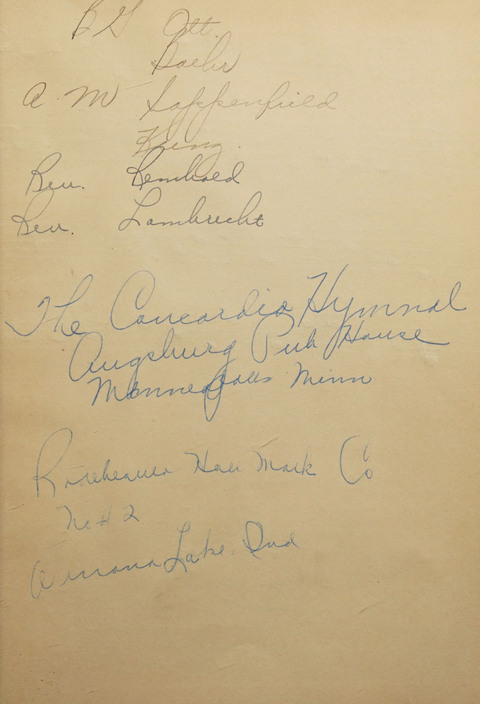 B G Ott.
Baehr
A. M Sappenfield
King.
Rev. Reinhold
Rev. Lambrecht
The Concordia Hymnal
Augsburg Pub House
Minneapolis Minn
Hall Mark Co
No # 2
Winona Lake Ind